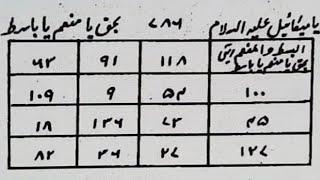 یا میکائیل علیہ السلام ۷۸۶ بحق یا منعم یا باسط
۱۱۸ ۹۱ ۶۳
بحق یا منعم یا باسط
۱۰۰ ۵۴ ۹ ۱۰۹
۴۵ ۷۳ ۱۳۶ ۱۸
۱۲۷ ۲۷ ۳۶ ۸۲